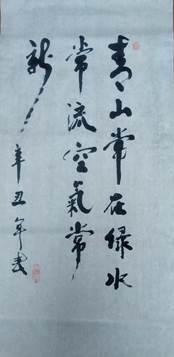 青山常在绿水
常流空氣常
新
辛丑年書